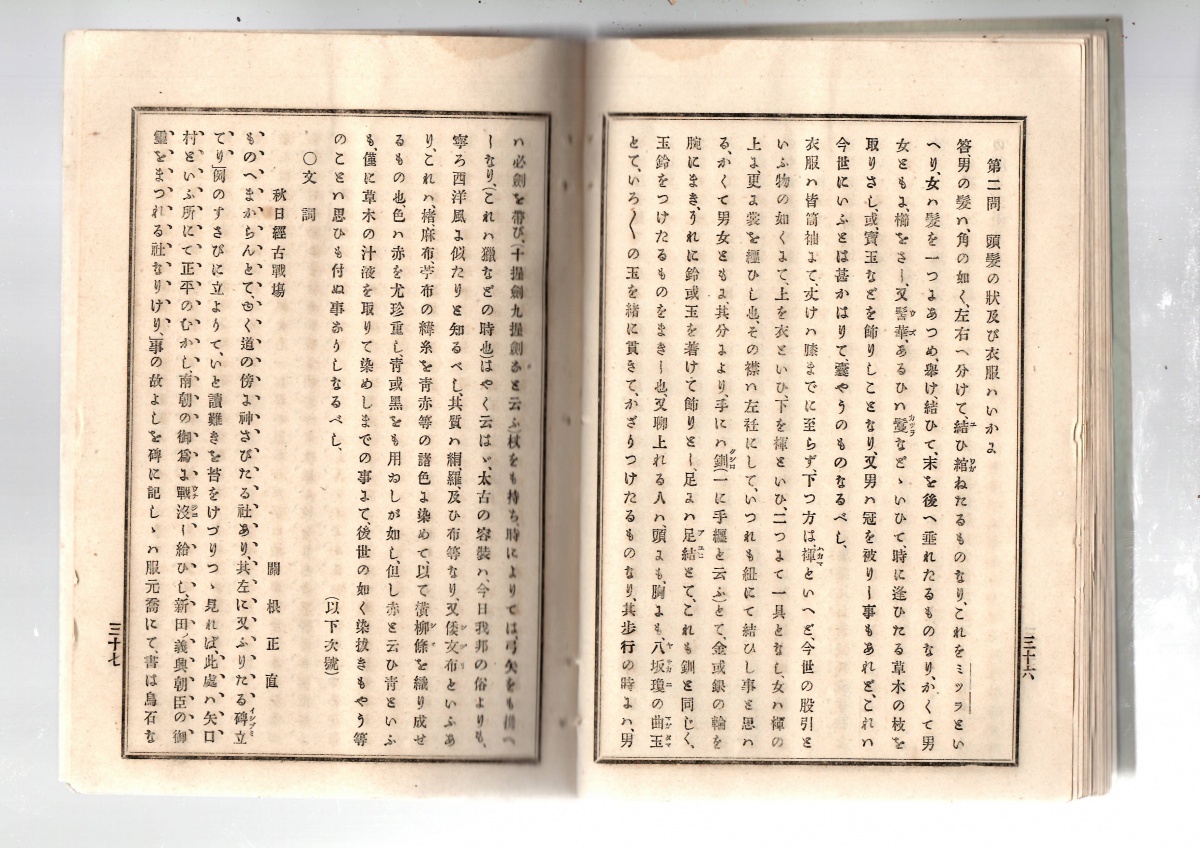 第二問　頭髮の狀及び衣服ハいかよ
答、男の髮ハ、角の如く、左右ヘ分けて、結ひ綰ねたるものなり、これをミツラとい
へり、女ハ髮を一つよあつめ、擧け、結ひて、末を後へ垂れたるものなり、かくて男
女ともよ、櫛をさし、又髻華、あるひハ鬘などゝいひて時に逢ひたる草木の枝を
取りさし、或ハ寶玉などを飾りしことなり、又男ハ冠を被りし事もあれど、これハ
今世にいふとは甚かはりて、囊やうのものなるべし、
衣服ハ皆筒袖よて、丈けハ膝までに至らず、下つ方は、褌といへど、今世の股引と
いふ物の如くよて、上を衣といひ、下を褌といひ、二つよて一具となし、女ハ褌の
上よ、更よ裳を纒ひし也、その襟ハ左衽にして、いつれも紐にて結ひし事と思ハ
る、かくて男女ともよ、其分よより、手にハ釧(一に手纒と云ふ)とて、金或銀の輪を
腕にまき、うれに鈴或玉を著けて飾りとし、足よハ足結とて、これも釧と同じく、
玉鈴をつけたるものをまきし也、又聊上れる人ハ、頭よも、胸よも、八坂瓊の曲玉
とて、いろ〳〵の玉を緖に貫きて、かざりつけたるものなり、其步行の時よハ、男
三十六
ハ必劍を帶び、(十握劍九握劍など云ふ)杖をも持ち、時によりては、弓矢をも携へ
しなり、(これハ獵などの時也)はやく云はゞ、太古の容裝ハ、今日我邦の俗よりも、
寧ろ西洋風よ似たりと知るべし、其質ハ絹羅及ひ布等なり、又倭文布といふあ
り、これハ楮麻布苧布の緯糸を靑赤等の諸色よ染めて、以て橫柳條を織り成せ
るもの也、色ハ赤を尤珍重し、靑或黑をも用ゐしが如し、但し赤と云ひ靑といふ
も、僅に草木の汁液を取りて染めしまでの事よて、後世の如く染拔きもやう等
のことハ思ひも付ぬ事ありしなるべし、
(以下次號)
〇文　詞
秋日經古戰塲
關根正直
ものへまからんとてゆく道の傍よ神さびたる社あり、其左に又ふりたる碑立
てり」例のすさびに立よりて、いと讀難きを苔をけづりつゝ見れば、此處ハ矢口
村といふ所にて正平のむかし、南朝の御爲よ戰沒し給ひし、新田ノ義興朝臣の御
靈をまつれる社なりけり、」事の故よしを碑に記しゝハ服元喬にて、書は烏石な
三十七